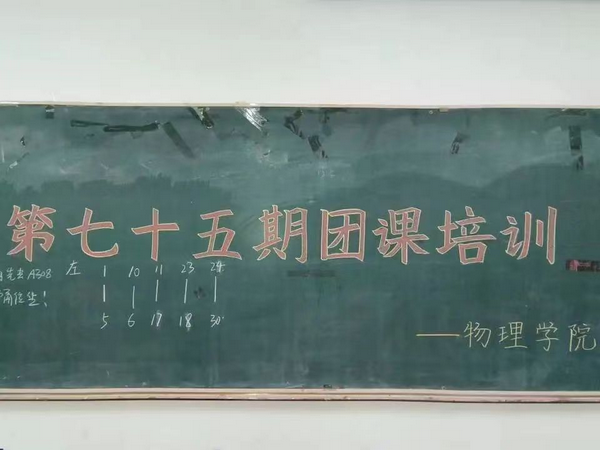 第七十五期团课培训
左 1 10 11 23 24
先去A308
5 6 17 18 30
——物理学院